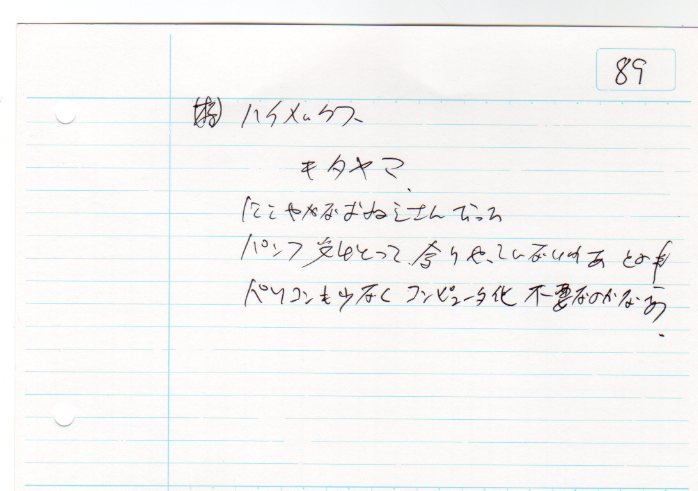 89
(株) ハイメックス
キタヤマ
にこやかなおねえさんだった
パンフ受けとって、余りやっていないけあ との事
パソコンも少なく コンピュータ化 不要なのかなあ.